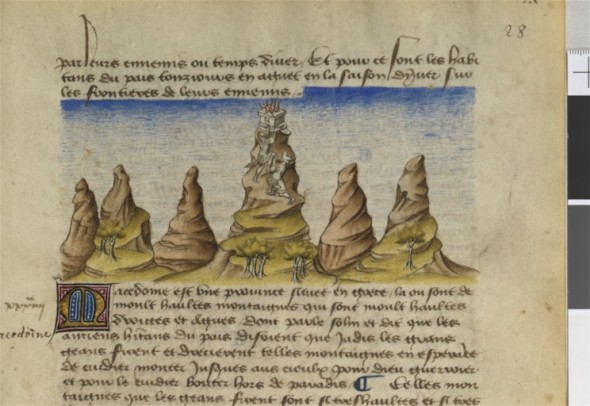 28
par leurs ennemis ou temps diver. Et pour ce sont les habi
tans du pais tousiours en aguet en la saison dyver sur
les frontieres de leurs ennemis.
xxxiiii
Macedoine est une province située en grece, la ou sont de
moult haultes montaignes qui sont moult haultes
droictes et agues dont parle solin et dit que les
macedoine
anciens hitans du pais disoient que jadis les grans
geans firent et drecierent telles montaignes en esperance
de cuidier monter jusques aus cieulx pour dieu guerroier
et pour le cuidier bouter hors de paradis ¶ Celles mon
taignes que les geans firent sont si tres haultes et si tres